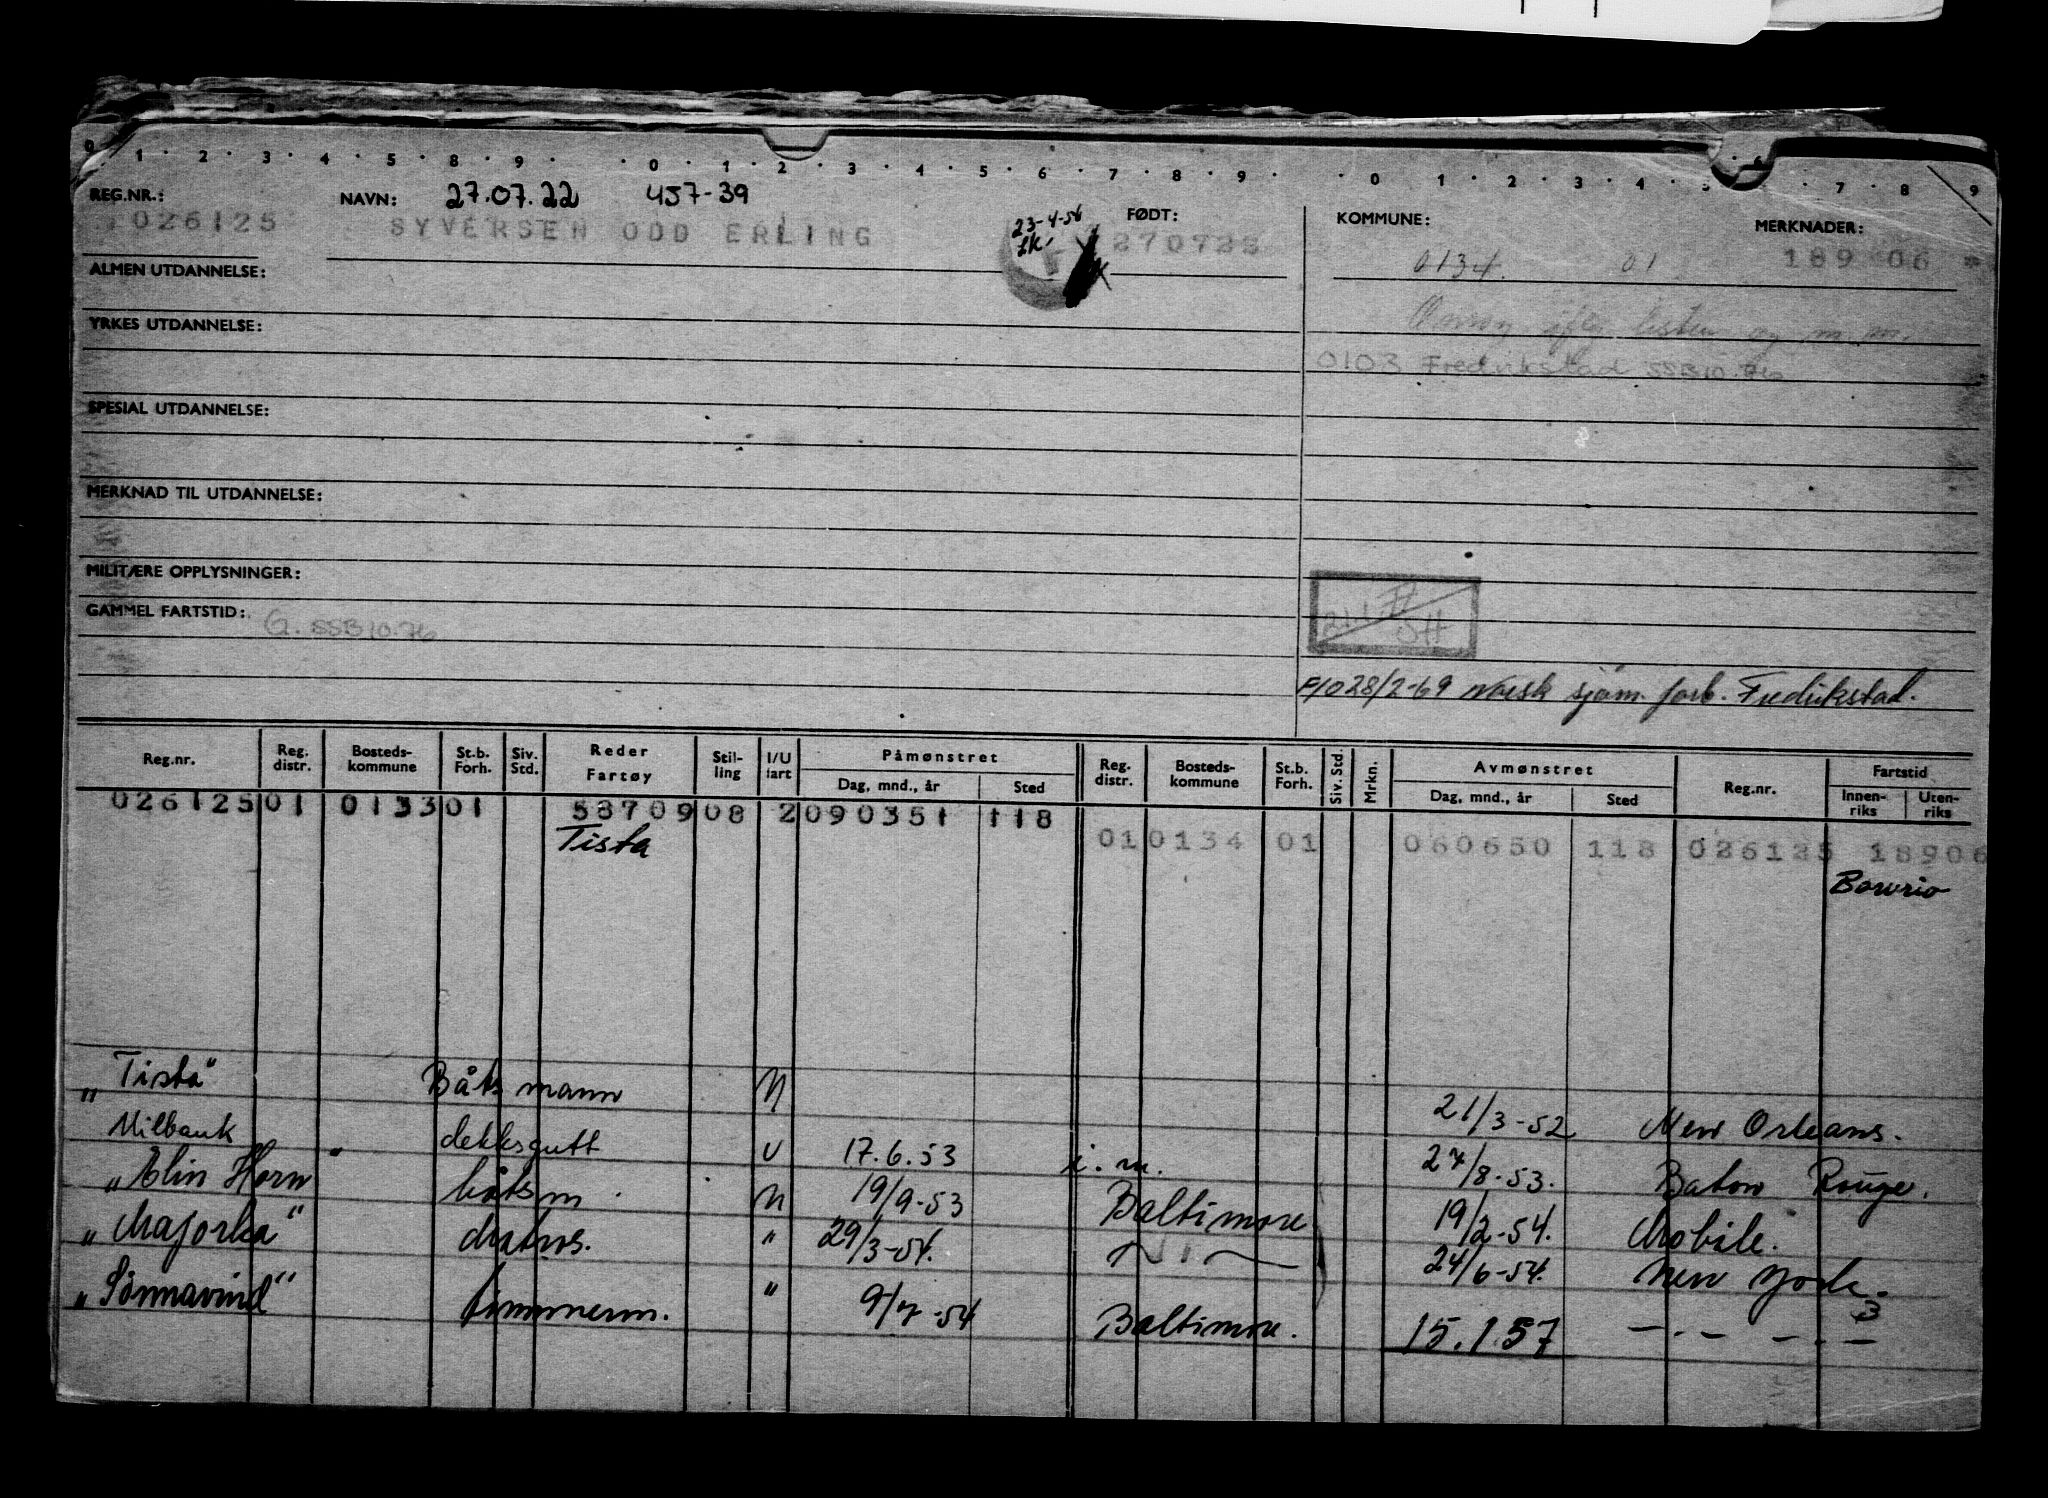 0 1 2 3 4 5 8 9 0 1 2 3 4 5 6 7 8 9 0 1 2 3 4 5 6 7 8 9
REG.NR.: NAVN: 27.07.22 457-39 FØDT: KOMMUNE: MERKNADER:
026125 SYVERSEN ODD ERLING 23-4-56 270722 0134. 01 189 06
ALMEN UTDANNELSE:
YRKES UTDANNELSE: listen og m.m.
0103 Fredrikstad SSB 10.76
SPESIAL UTDANNELSE:
MERKNAD TIL UTDANNELSE:
MILITÆRE OPPLYSNINGER:
GAMMEL FARTSTID: G. SSB 10.76
28/2-69 Norsk sjøm. forb. Fredrikstad.
Reg.nr. Reg. distr. Bosteds-kommune St.b. Forh. Siv. Std. Reder Fartøy Stil-ling I/U fart Påmønstret Dag, mnd., år Sted Reg. distr. Bosteds-kommune St.b. Forh. Siv. Std. Mrkn. Avmønstret Dag, mnd., år Sted Reg.nr. Fartstid Innen-riks Uten-riks
026125 01 0133 01 53709 08 2 090351 118
Tista 01 0134 01 060650 118 026125 18906
Bowrio
"Tista" Båtsmann U 21/3-52 New Orleans.
Milbank dekksgutt U 17.6.53 i.m. 27/8-53. Baton Rouge.
"Elin Horn båtsm. U 19/9-53 Baltimore 19/2-54. Mobile.
"Majorka" matros. " 29/3-54. 24/6-54. New York.
"Sönnavind" tømmerm. " 9/7-54 Baltimore. 15.1.57 3 —.— —.—